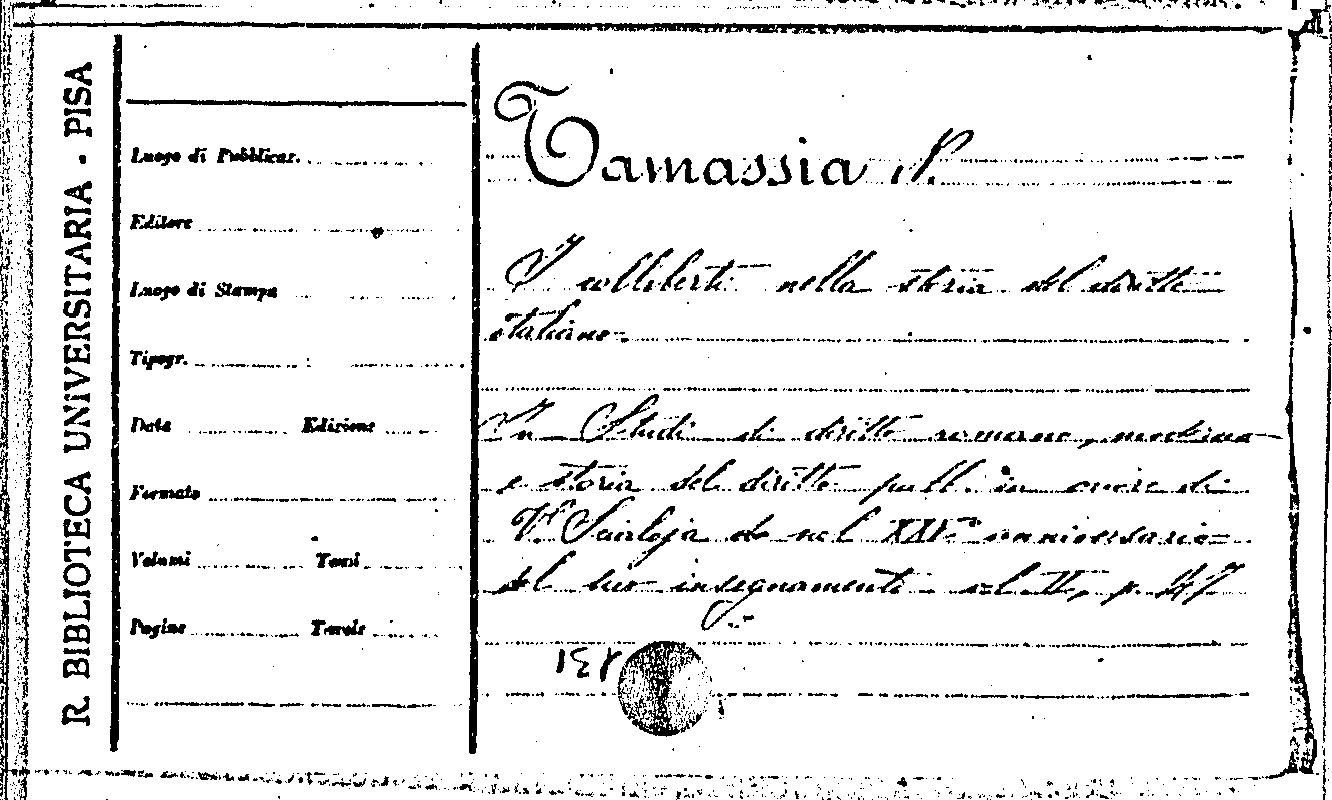 R. BIBLIOTECA UNIVERSITARIA - PISA
Luogo di Pubblicaz.
Editore
Luogo di Stampa
Tipogr.
Data Edizione
Formato
Volumi Tomi
Pagine Tavole
Tamassia N.
I colliberti nella storia del diritto
italiano.
In Studi di diritto romano, moderno
e storia del diritto pubb. in onore di
V. Scialoja nel XXV° anniversario
del suo insegnamento p.